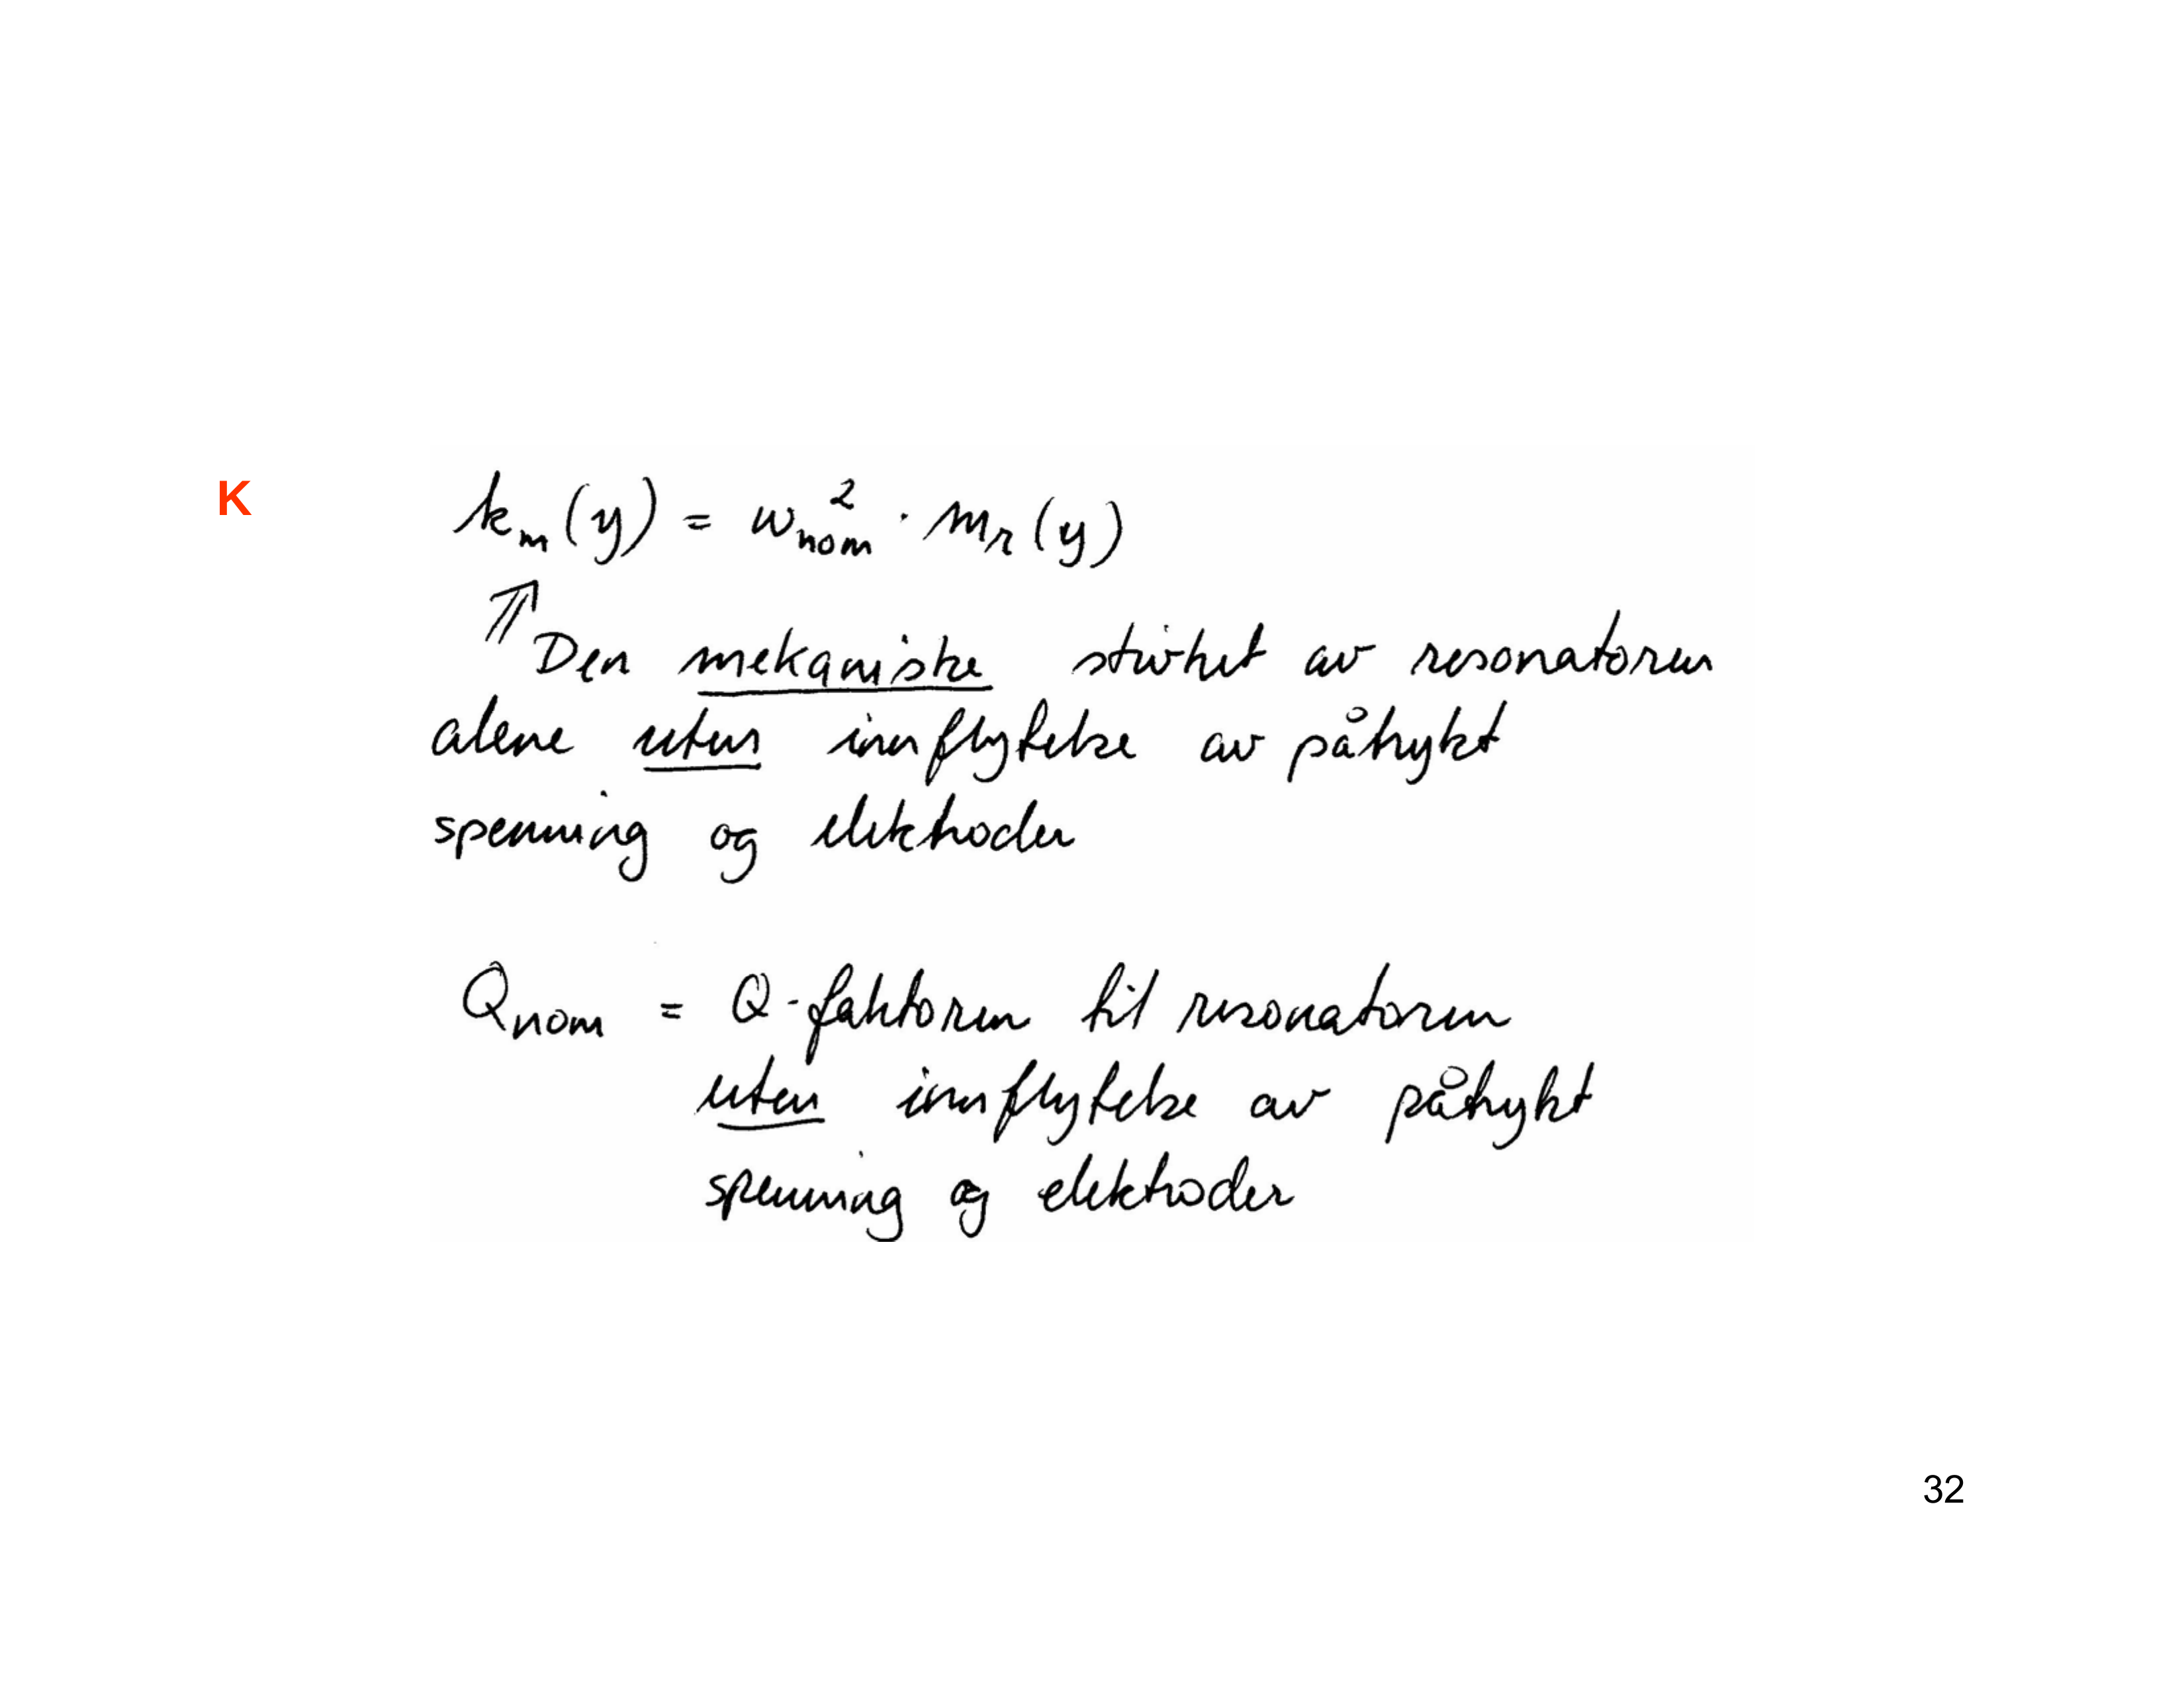 K
k_m(y) = ω_nom² · m_r(y)
⇑ Den mekaniske stivhet av resonatoren
alene uten innflytelse av påtrykt
spenning og elektroder
Q_nom = Q-faktoren til resonatoren
uten innflytelse av påtrykt
spenning og elektroder
32